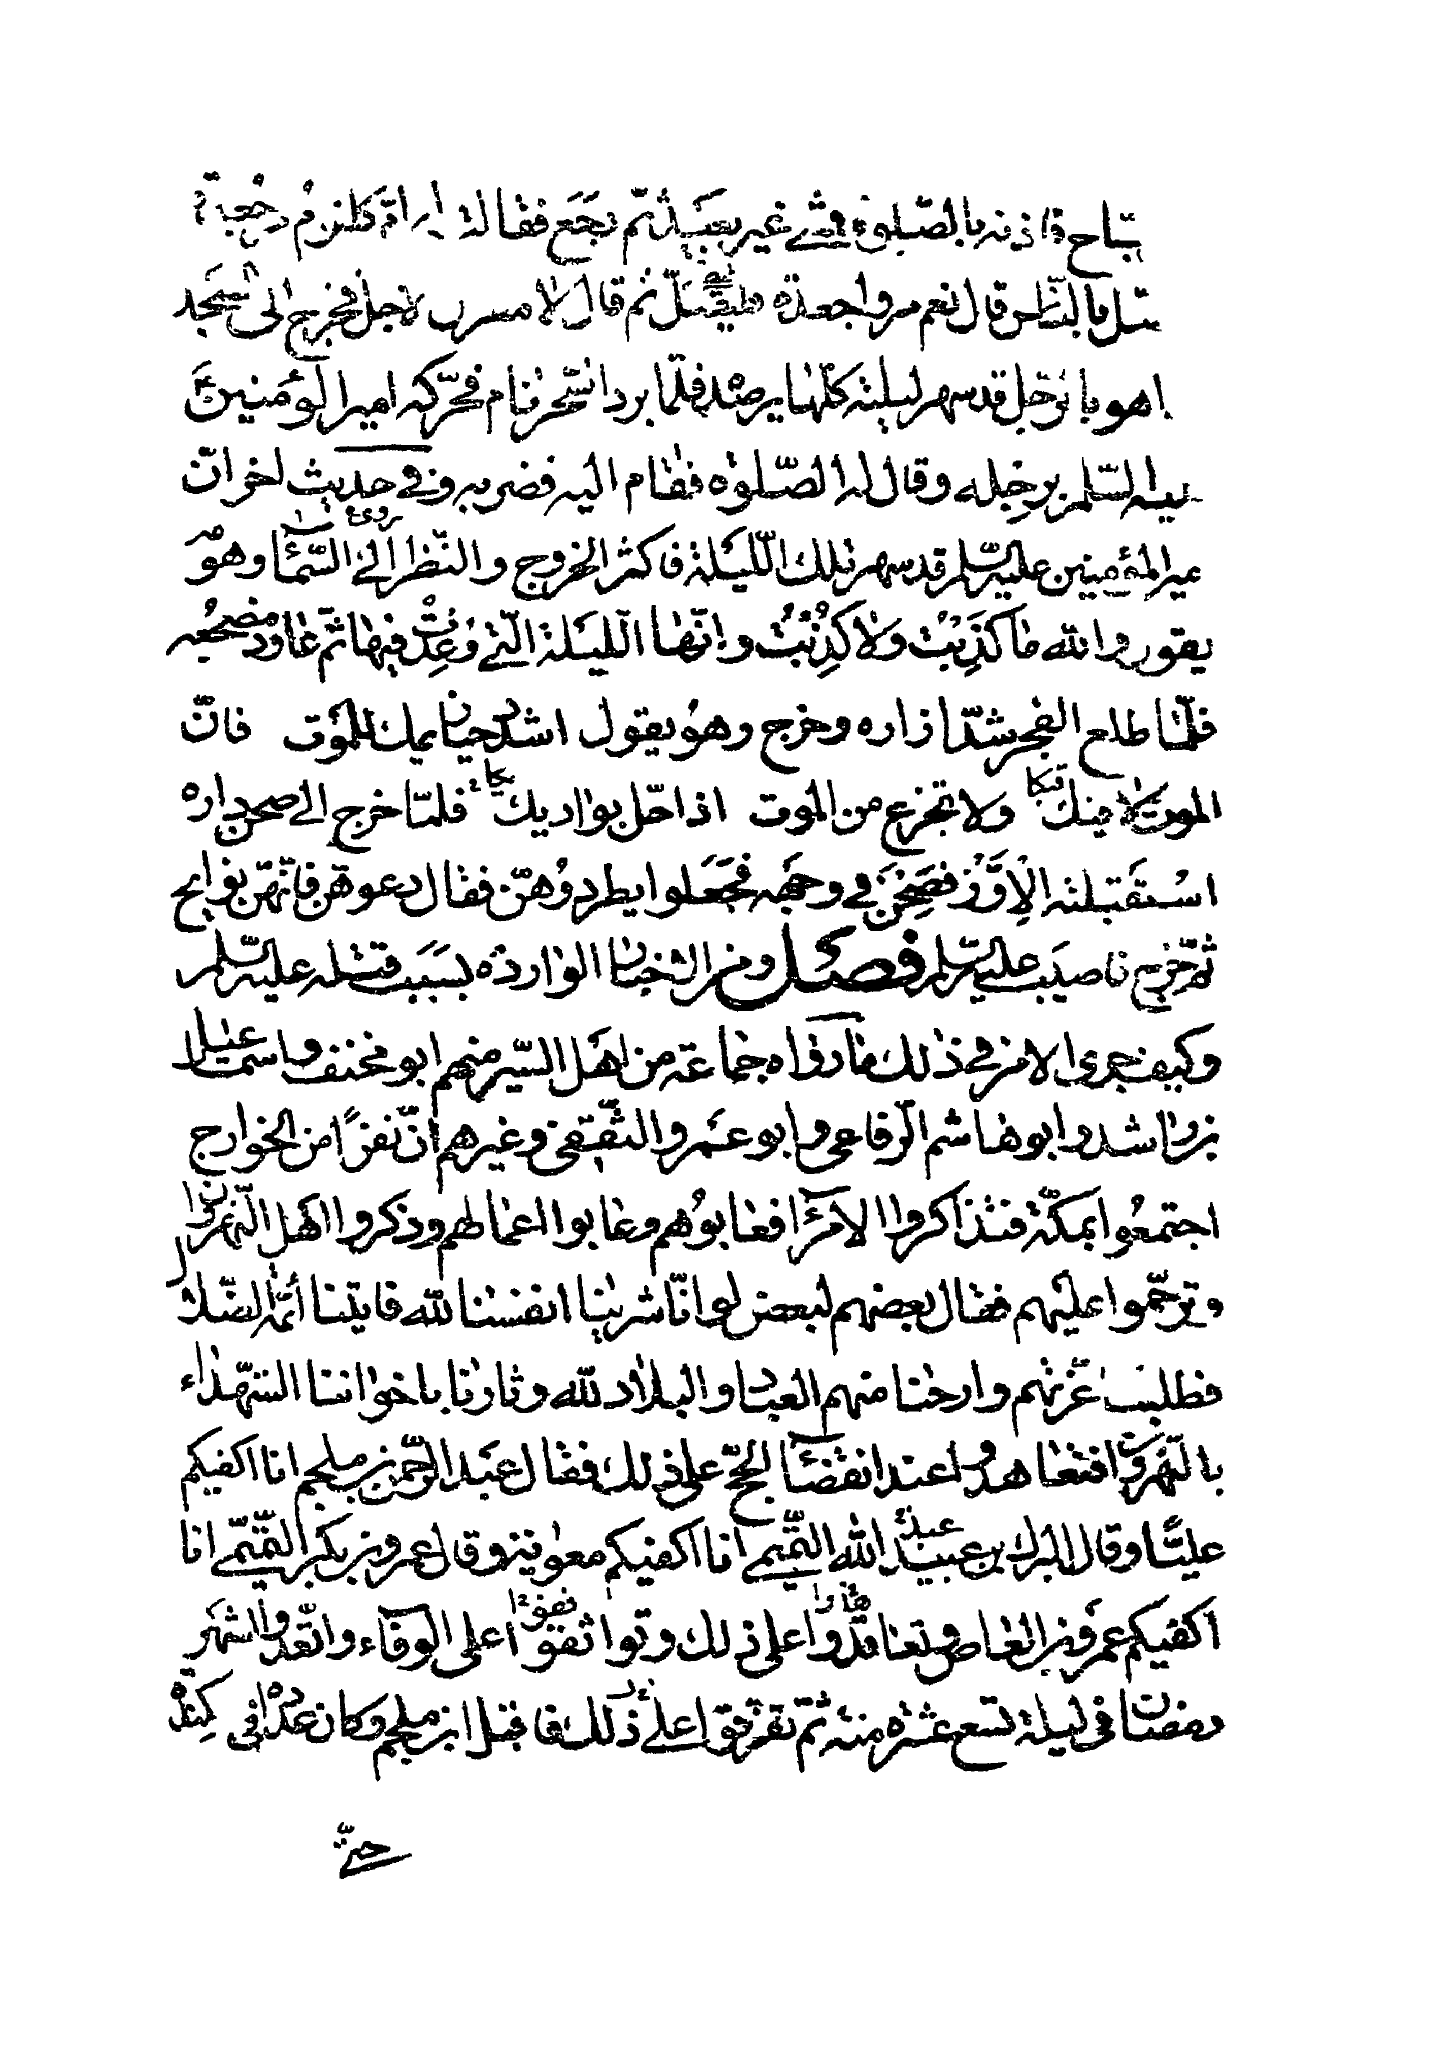 تباح فاذنه بالصلوة فمشى غير بعيد ثم رجع فقالت ام كلثوم جعدة
صل بالناس قال نعم مروا جعدة فليصل ثم قال لا مهرب لاجل فخرج الى المسجد
اهو بالرجل قد سهر ليلته كلها يرصده فلما برد السحر نام فحركه امير المؤمنين
عليه السلم برجله وقال له الصلوة فقام اليه فضربه وفي حديث اخر ان
مير المؤمنين عليه السلم قد سهر تلك الليلة فاكثر الخروج والنظر الى السماء وهو
يقول والله ما كذبت ولا كذبت وانها الليلة التي وعدت فيها ثم عاود مضجعه
فلما طلع الفجر شد ازاره وخرج وهو يقول اشدد حيازيمك للموت فان
الموت لاقيكا ولا تجزع من الموت اذا حل بواديك فلما خرج الى صحن داره
استقبلته الاوز فصحن في وجهه فجعلوا يطردوهن فقال دعوهن فانهن نوايح
ثم خرج فاصيب عليه السلم فصل ومن الاخبار الواردة بسبب قتله عليه السلم
وكيف جرى الامر في ذلك ما رواه جماعة من اهل السير منهم ابو مخنف واسماعيل
بن راشد وابو هاشم الرفاعي وابو عمرو الثقفي وغيرهم ان نفرا من الخوارج
اجتمعوا بمكة فتذاكروا الامراء فعابوهم وعابوا اعمالهم وذكروا اهل النهروان
وترحموا عليهم فقال بعضهم لبعض لو انا شرينا انفسنا لله فاتينا ائمة الضلال
فطلبنا غرتهم وارحنا منهم العباد والبلاد لله وثارنا باخواننا الشهداء
بالنهروان فتعاهدوا عند انقضاء الحج على ذلك فقال عبد الرحمن بن ملجم انا اكفيكم
عليا وقال البرك بن عبيد عبد الله التميمي انا اكفيكم معوية وقال عمرو بن بكر التميمي انا
اكفيكم عمرو بن العاص وتعاقدوا على ذلك وتواثقوا على الوفاء واتعدوا لشهر
رمضان في ليلة تسع عشرة منه ثم تفرقوا على ذلك فاقبل ابن ملجم وكان عداده في كندة
حتى